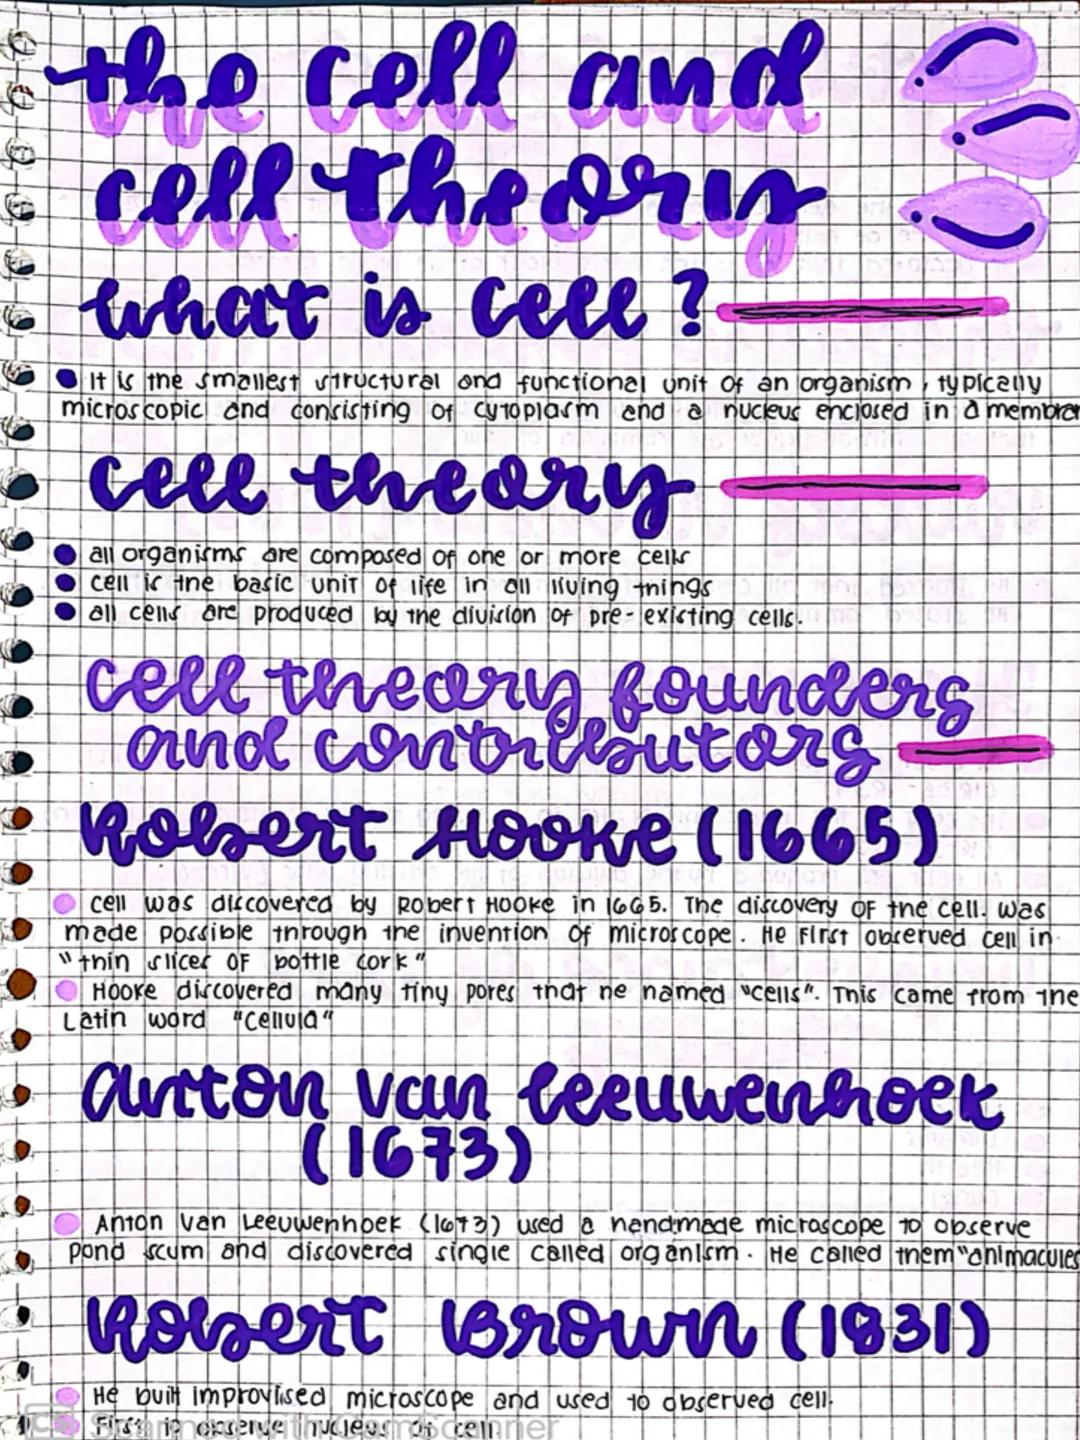 the cell and
cell theory
what is cell?
It is the smallest structural and functional unit of an organism, typically
microscopic and consisting of cytoplasm and a nucleus enclosed in a membran
cell theory
all organisms are composed of one or more cells
cell is the basic unit of life in all living things
all cells are produced by the division of pre-existing cells.
cell theory founders
and contributors
Robert Hooke (1665)
cell was discovered by Robert Hooke in 1665. The discovery of the cell was
made possible through the invention of microscope. He first observed cell in
"thin slices of bottle cork"
Hooke discovered many tiny pores that he named "cells". This came from the
Latin word "cellula"
anton van leeuwenhoek
(1673)
Anton Van Leeuwenhoek (1673) used a handmade microscope to observe
pond scum and discovered single called organism. He called them "animacules
Robert Brown (1831)
He built improvised microscope and used to observed cell.
First to observe nucleus of cell
Scanned with CamScanner